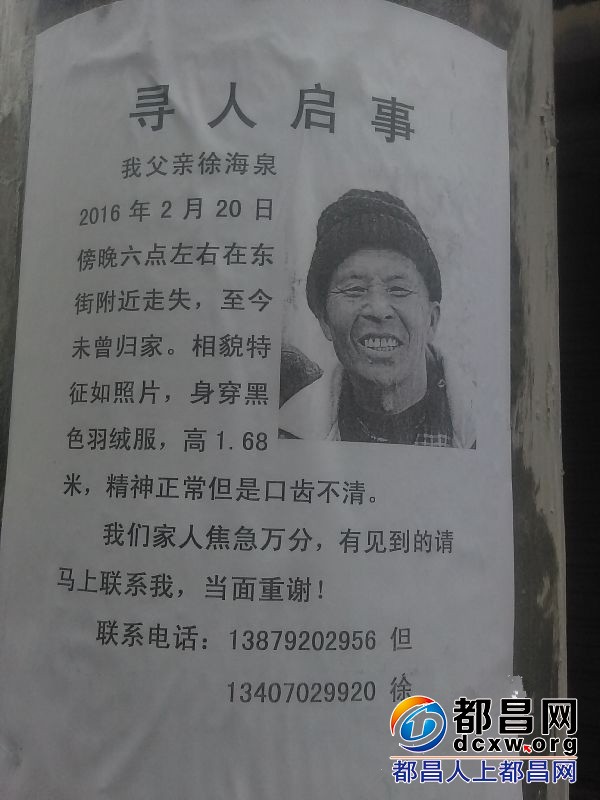 寻人启事
我父亲徐海泉
2016年2月20日
傍晚六点左右在东
街附近走失，至今
未曾归家。相貌特
征如照片，身穿黑
色羽绒服，高1.68
米，精神正常但是口齿不清。
我们家人焦急万分，有见到的请
马上联系我，当面重谢！
联系电话：13879202956 但
13407029920 徐
都昌网
dcxw.org
都昌人上都昌网